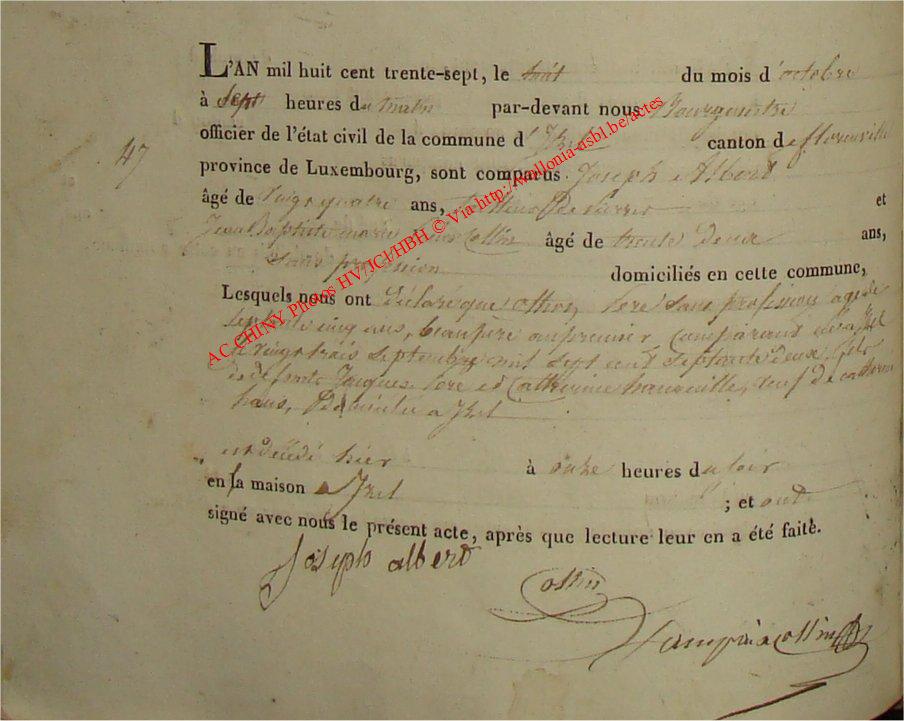 L'AN mil huit cent trente-sept, le huit du mois d'octobre
à sept heures du matin par-devant nous Bourgmestre
officier de l'état civil de la commune d'Izel canton de florenville
47
province de Luxembourg, sont comparus Joseph Albert
âgé de vingt quatre ans, et
Jean Baptiste marie Collin âgé de trente deux ans,
sans profession domiciliés en cette commune,
Lesquels nous ont déclaré que othon, Pere sans profession, agé de
septante cinq ans, beaupere au premier Comparant né à Izel
le vingt trois Septembre mil sept cent septante deux, fils
de defunts Jacques Pere et Catherine hauseville, veuf de catherine
haus, domicilié à Izel
est décédé hier à onze heures du soir
en la maison à Izel ; et ont
signé avec nous le présent acte, après que lecture leur en a été faite.
Joseph albert
Collin
Collin
AC CHINY Photos HV/JCl/HBH © Via http://wallonia-asbl.be/actes